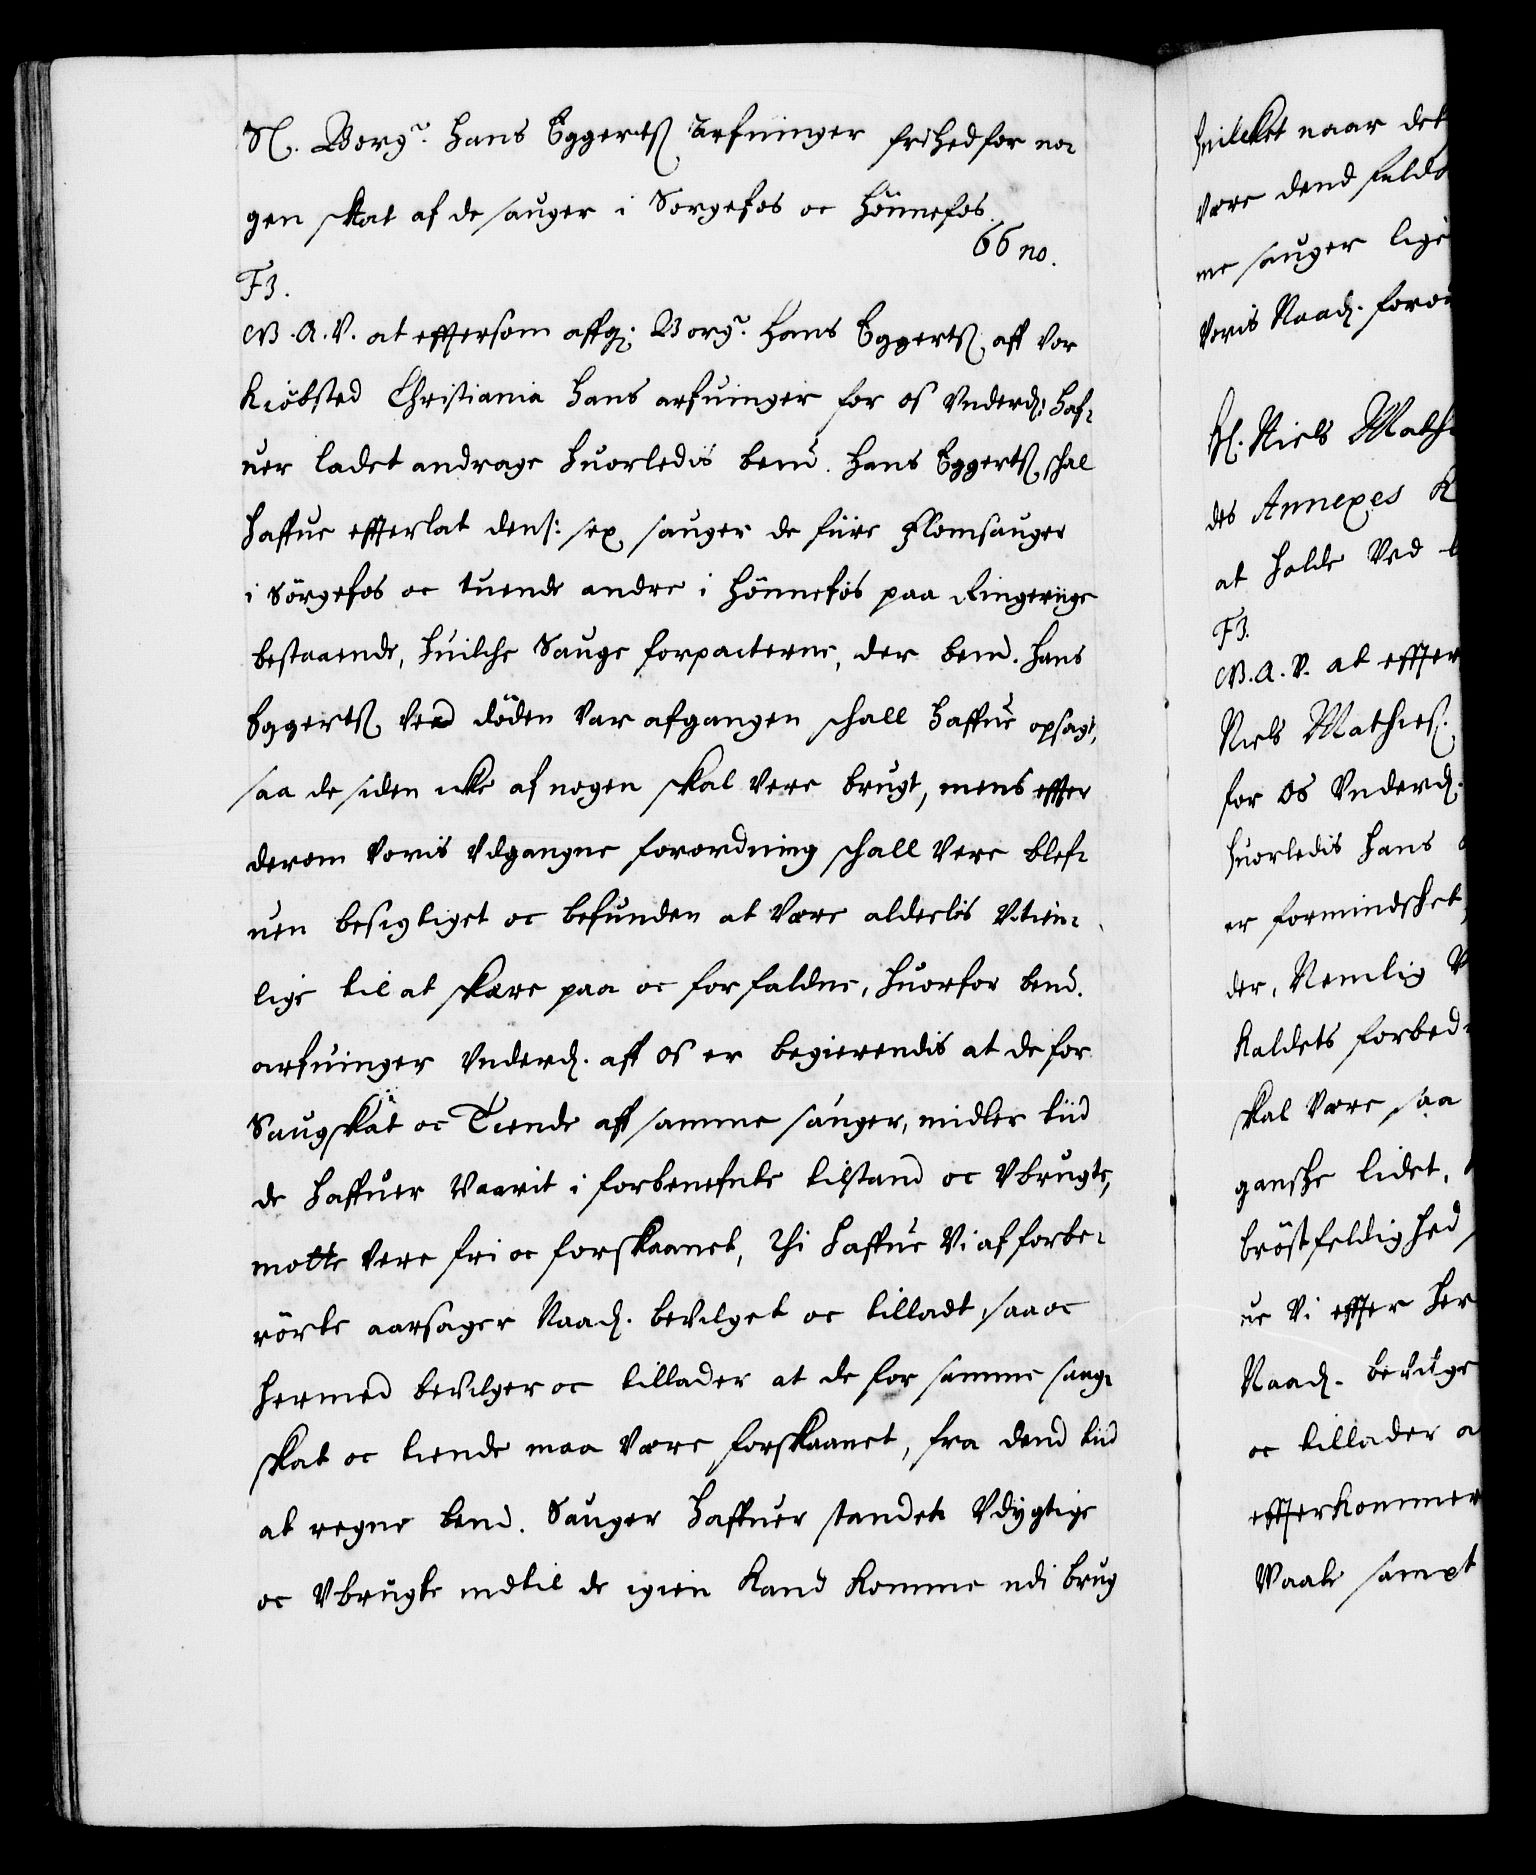 Sl. Borgr. Hans Eggertß Arfuinger frihed for no-
gen skat af de sauger i Sorgefos oc Hönnefos.
66 no.
F3.
G.A.V. at effersom affg: Borgr. Hans Eggertß aff vor
Kiöbsted Christiania Hans arfuinger for os Vnderd: Haf-
uer ladet andrage huorledis bemd. Hans Eggertß schal
haffue efterlat dens: sex sauger de fiire Flomsauger
i Sörgefos oc tuende andre i Hönnefos paa Ringeriige
bestaaende, huilche Sauge forpacterne, der bemd. Hans
Eggertß ved döden var afgangen schall haffue opsagt,
saa de siden icke af nogen skal vere brugt, mens effter
derom voris vdgangne forordning schall vere blef-
uen besigtiget oc befunden at Være aldeelis vtien-
lige til at skære paa oc forfaldne, huorfor bemd.
arfuinger Vnderd. aff os er begierendis at de for
Saugskat oc Tiende aff samme sauger, midler tiid
de haffuer Vaarit i forbenefnte tilstand oc Vbrugte,
motte vere fri oc forskaanet, Thi haffue Vi af forbe-
rörte aarsager Naad. bevilget oc tilladt saa oc
hermed bevilger oc tillader at de for samme saug-
skat oc tiende maa være forskaanet, fra dend tiid
at regne bemd. Sauger haffuer standet Vdygtige
oc Vbrugte indtil de igien Kand Komme udi brug
huilcket naar det
være dend fulde
me sauger lige
Voris Naad. foror
Hl. Niels Math
des Annexes K
at holde Ved
F3.
G.A.V. at effter
Niels Mathieß.
for os Vnderd.
huorledis hans
er formindschet
der, Nemlig
Kaldets forbed-
skal være saa
gansche lidet,
bröstfeldighed
ue Vi effter her
Naad. bevilge
oc tillader a
effterkommer
Maate sampt